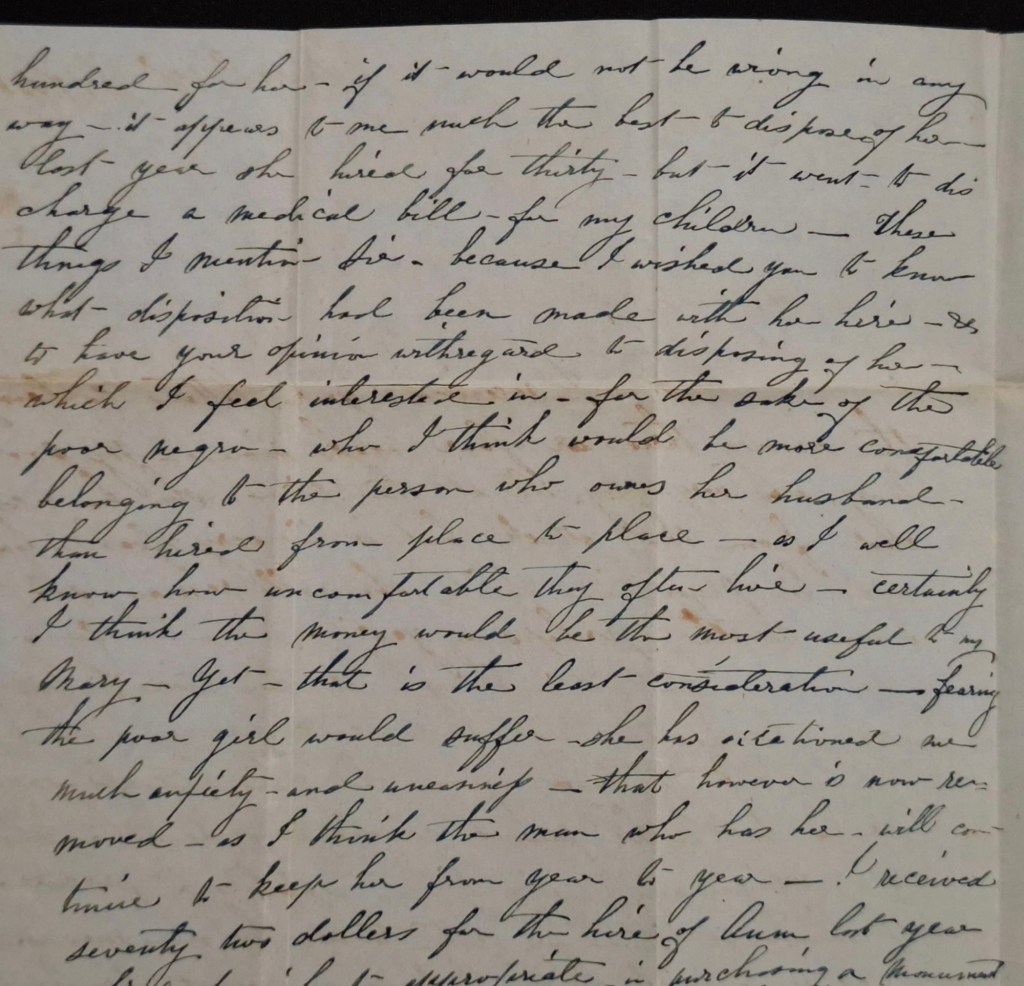 hundred for her – if it would not be wrong in any
way – it appears to me much the best – to dispose of her –
last year she hired for thirty – but it went – to dis
charge a medical bill – for my children – These
things I mention Sir – because I wished you to know
what disposition had been made with her hire – &
to have your opinion with regard to disposing of her –
which I feel interested in – for the sake of the
poor negro – who I think would be more comfortable
belonging to the person who owns her husband –
than hired from place to place – as I well
know how uncomfortable they often live – certainly
I think the money would be the most useful to my
Mary – Yet – that is the least consideration – fearing
the poor girl would suffer – she has occationed me
much anxiety – and uneasiness – that however is now re-
moved – as I think the man who has her – will con-
tinue to keep her from year to year – I received
seventy two dollers for the hire of last year
to appropriate in purchasing a monument